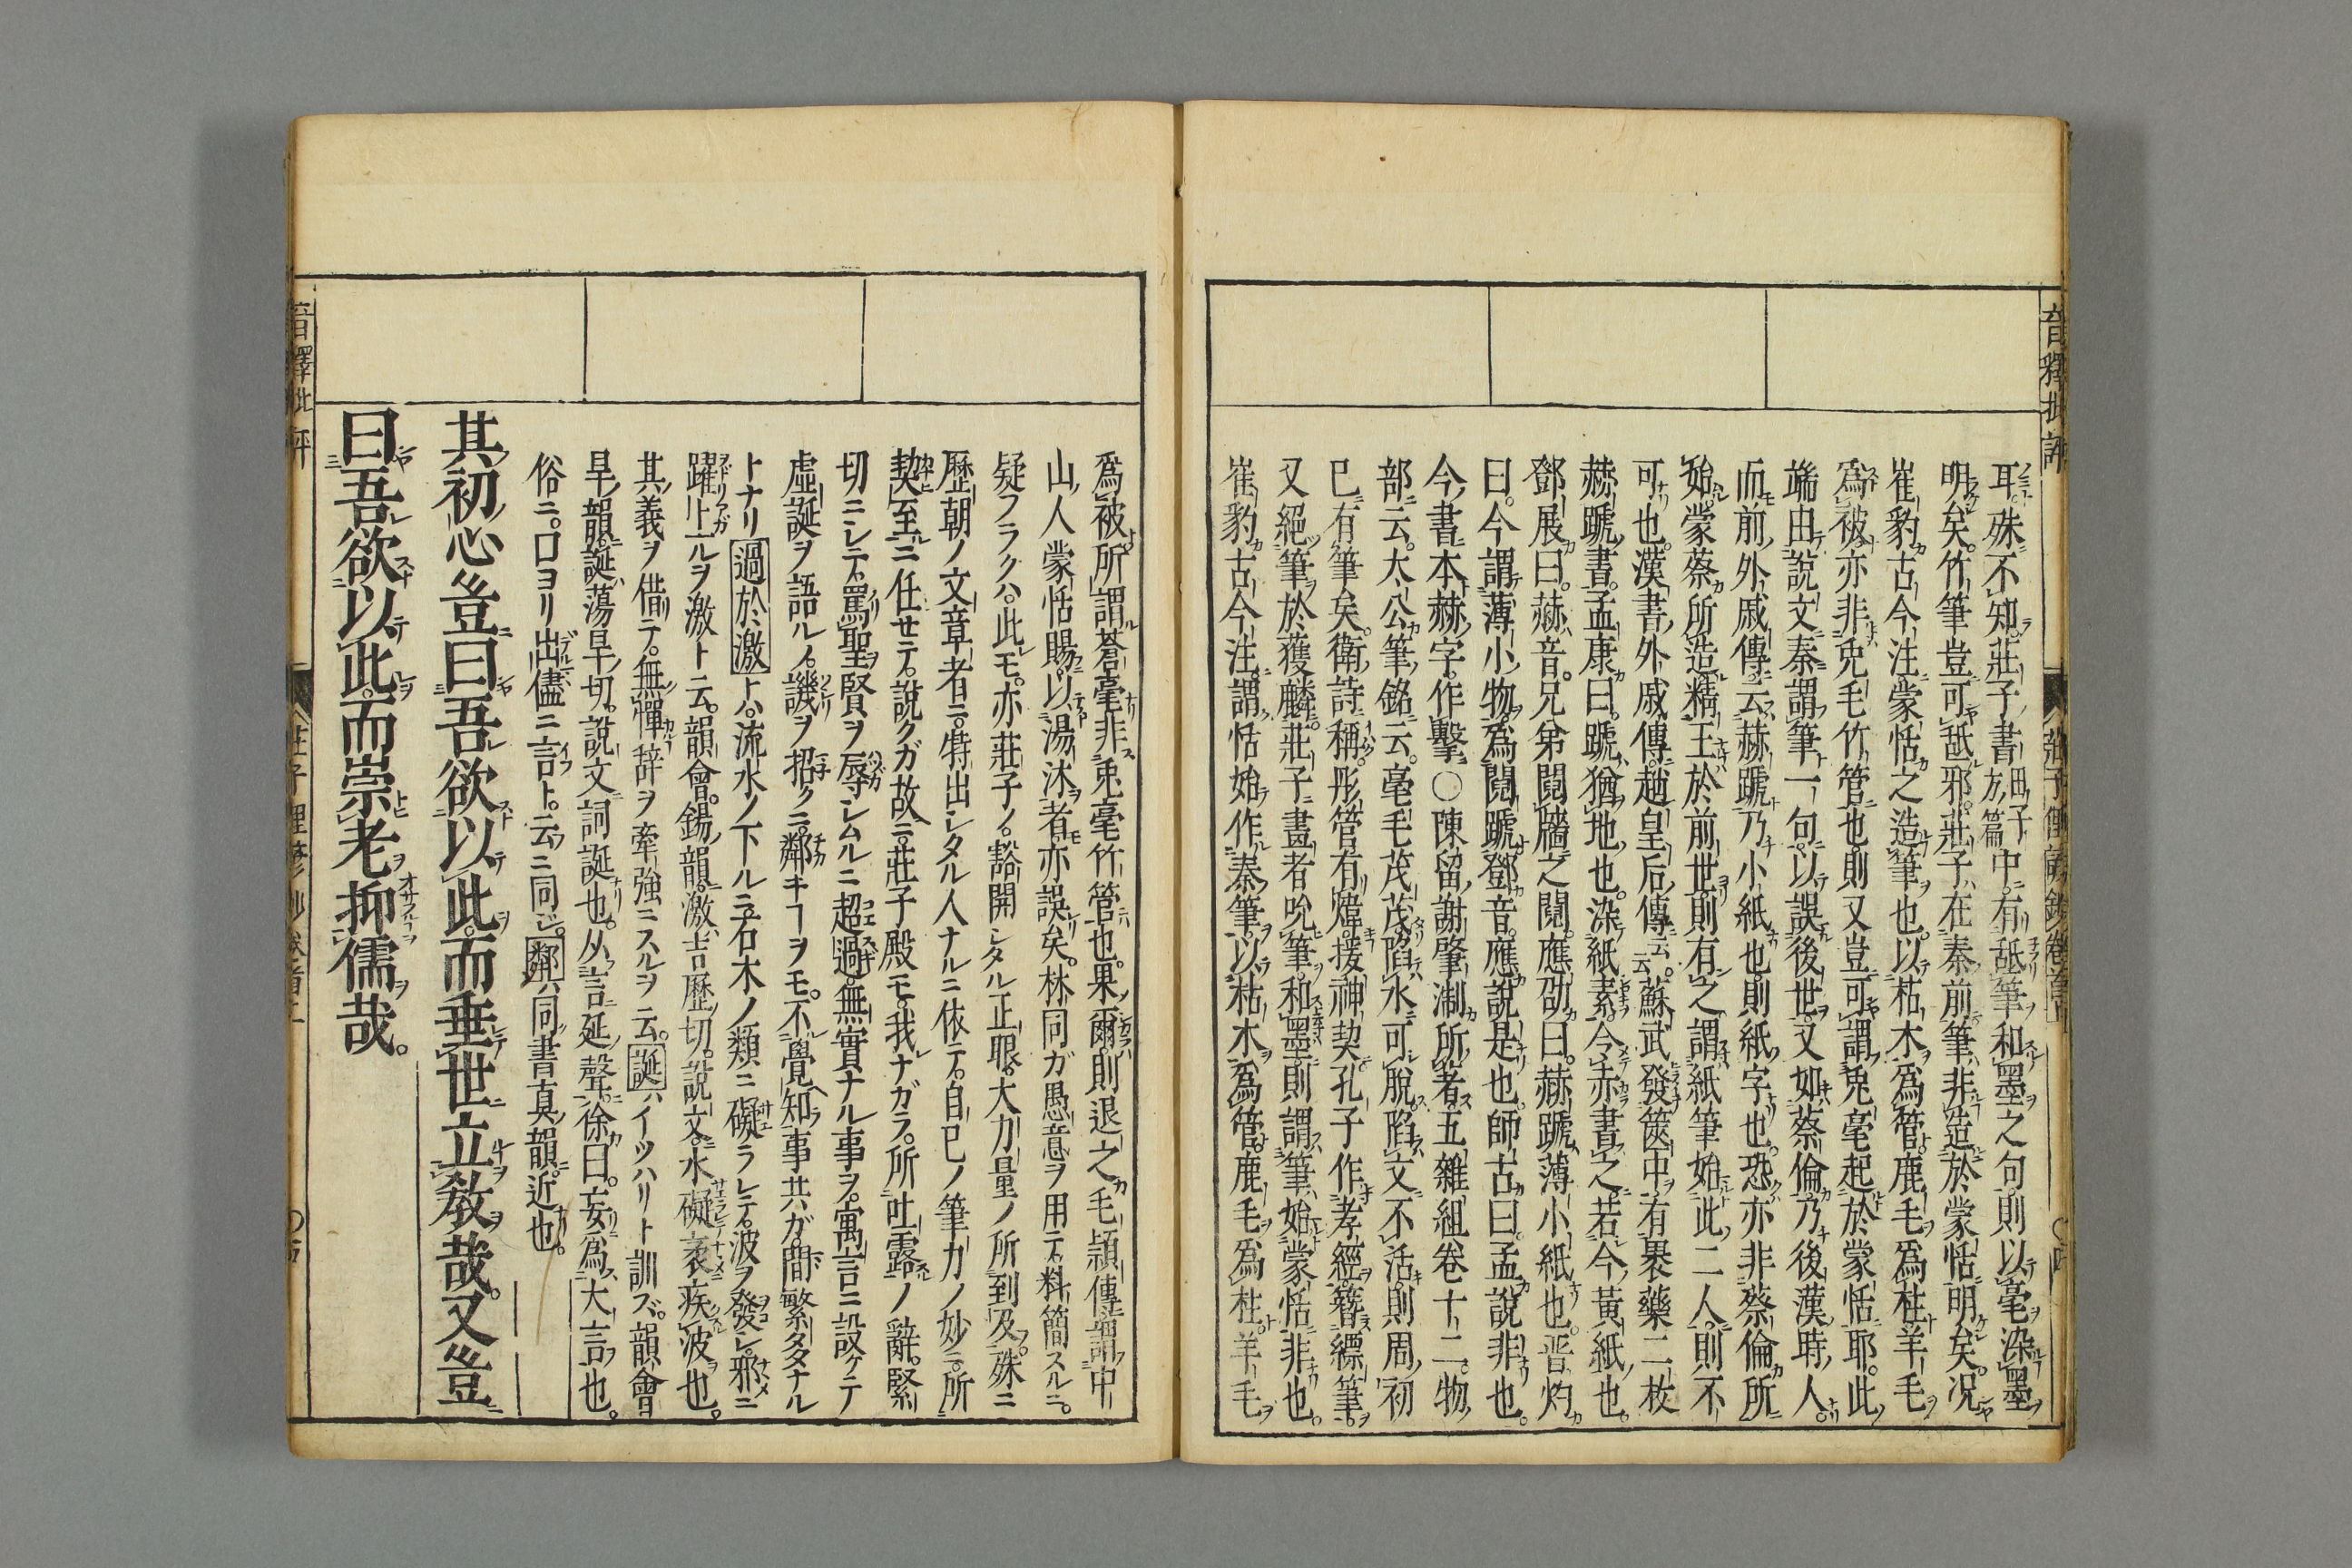 耳。殊不知。莊子書田子方篇中。有舐筆和墨之句。則以毫染墨
明矣。竹筆豈可舐邪。莊子在秦前筆非造於蒙恬明矣。况
崔豹古今注。蒙恬之造筆也。以枯木爲管。鹿毛爲柱。羊毛
爲被。亦非兎毛竹管也。則又豈可謂兎毫起於蒙恬耶。此
端由說文秦謂筆一句。以誤後世。又如蔡倫乃後漢時人。
而前外戚傳云。赫蹏乃小紙也。則紙字也。恐亦非蔡倫所
始。蒙蔡所造精工於前世則有之。謂紙筆始此二人則不
可也。漢書外戚傳。趙皇后傳云。云蘇武發篋中有裹藥二枚
赫蹏書。孟康曰。蹏猶地也。染紙素令赤書之若今黃紙也。
鄧展曰。赫音兄弟鬩牆之鬩。應劭曰。赫蹏薄小紙也。晋灼
曰。今謂薄小物爲鬩蹏。鄧音應說是也。師古曰。孟說非也。
今書本赫字。作擊。○陳留謝肇淛所著五雜組卷十二。物
部云。太公筆銘云。毫毛茂茂。陷水可脫。陷文不活。則周初
已有筆矣。衛詩稱彤管有煒。援神契孔子作孝經。簪縹筆。
又絕筆於獲麟。莊子畫者吮筆。和墨。則謂筆始蒙恬非也。
崔豹古今注。謂恬始作秦筆。以枯木爲管。鹿毛爲柱。羊毛
爲被。所謂蒼毫。非兎毫竹管也。果爾則退之毛頴傳謂中
山人蒙恬賜以湯沐者亦誤矣。林同ガ愚意ヲ用テ料簡スルニ。
疑フラクハ。此モ。亦莊子ノ。豁開シタル正眼。大力量ノ所到及。殊ニ
歷朝ノ文章者ニ。特出シタル人ナルニ依テ。自已ノ筆力ノ妙ニ。所
契至ニ任セテ。說クガ故ニ。莊子殿モ。我ナガラ。所吐露ノ辭。緊
切ニシテ。罵聖賢ヲ辱シムルニ超過。無實ナル事ヲ。寓言ニ設ケテ
虛誕ヲ語ルノ。譏ヲ招クニ。鄰キヿヲモ。不覺知事共ガ。間繁タタナル
トナリ過於激トハ。流水ノ下ルニ石木ノ類ニ礙ラレテ。波ヲ發シ。邪ニ
躍上ルヲ激ト云。韻會。錫韻。激吉歷切。說文。水礙衺疾波也。
其義ヲ借テ。無憚辞ヲ牽強ニスルヲ云。誕ハイツハリト訓ズ。韻會
旱韻。誕蕩旱切。說文詞誕也。从言延聲。徐曰。妄爲大言也。
俗ニ。口ヨリ出儘ニ言ト。云ニ同ジ。鄰ハ同書真韻。近也。
其初心豈曰吾欲以此而垂世立教哉。又豈
曰吾欲以此而崇老抑儒哉。